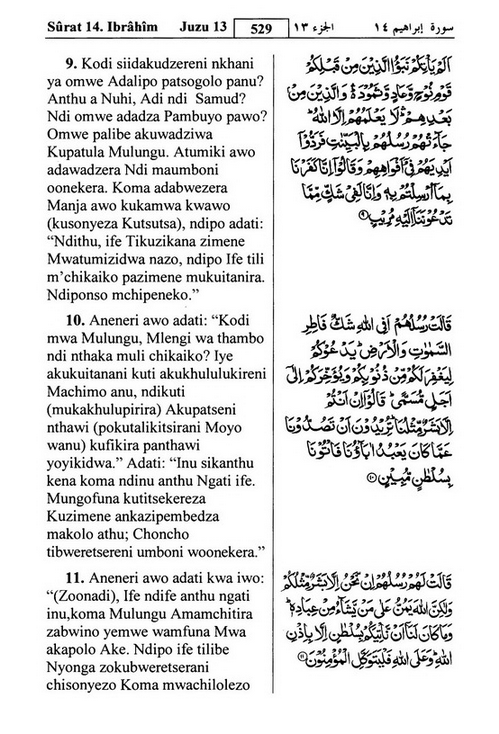 Sûrat 14. Ibrâhîm Juzu 13 529 الجزء ١٣ سورة إبراهيم ١٤
9. Kodi siidakudzereni nkhani
ya omwe Adalipo patsogolo panu?
Anthu a Nuhi, Adi ndi Samud?
Ndi omwe adadza Pambuyo pawo?
Omwe palibe akuwadziwa
Kupatula Mulungu. Atumiki awo
adawadzera Ndi maumboni
oonekera. Koma adabwezera
Manja awo kukamwa kwawo
(kusonyeza Kutsutsa), ndipo adati:
“Ndithu, ife Tikuzikana zimene
Mwatumizidwa nazo, ndipo Ife tili
m’chikaiko pazimene mukuitanira.
Ndiponso mchipeneko.”
اَلَمْ يَأْتِكُمْ نَبَؤُا الَّذِيْنَ مِنْ قَبْلِكُمْ
قَوْمِ نُوْحٍ وَّعَادٍ وَّثَمُوْدَ ۛ وَالَّذِيْنَ مِنْ
بَعْدِهِمْ ۛ لَا يَعْلَمُهُمْ اِلَّا اللّٰهُ ۭ
جَآءَتْهُمْ رُسُلُهُمْ بِالْبَيِّنٰتِ فَرَدُّوْٓا
اَيْدِيَهُمْ فِيْٓ اَفْوَاهِهِمْ وَقَالُوْٓا اِنَّا كَفَرْنَا
بِمَآ اُرْسِلْتُمْ بِهٖ وَاِنَّا لَفِيْ شَكٍّ مِّمَّا
تَدْعُوْنَنَآ اِلَيْهِ مُرِيْبٍ ۹
10. Aneneri awo adati: “Kodi
mwa Mulungu, Mlengi wa thambo
ndi nthaka muli chikaiko? Iye
akukuitanani kuti akukhululukireni
Machimo anu, ndikuti
(mukakhulupirira) Akupatseni
nthawi (pokutalikitsirani Moyo
wanu) kufikira panthawi
yoyikidwa.” Adati: “Inu sikanthu
kena koma ndinu anthu Ngati ife.
Mungofuna kutitsekereza
Kuzimene ankazipembedza
makolo athu; Choncho
tibweretsereni umboni woonekera.”
قَالَتْ رُسُلُهُمْ اَفِي اللّٰهِ شَكٌّ فَاطِرِ
السَّمٰوٰتِ وَالْاَرْضِ ۭ يَدْعُوْكُمْ
لِيَغْفِرَ لَكُمْ مِّنْ ذُنُوْبِكُمْ وَيُؤَخِّرَكُمْ اِلٰٓى
اَجَلٍ مُّسَمًّى ۭ قَالُوْٓا اِنْ اَنْتُمْ
اِلَّا بَشَرٌ مِّثْلُنَا ۭ تُرِيْدُوْنَ اَنْ تَصُدُّوْنَا
عَمَّا كَانَ يَعْبُدُ اٰبَآؤُنَا فَاْتُوْنَا
بِسُلْطٰنٍ مُّبِيْنٍ ۱۰
11. Aneneri awo adati kwa iwo:
“(Zoonadi), Ife ndife anthu ngati
inu,koma Mulungu Amamchitira
zabwino yemwe wamfuna Mwa
akapolo Ake. Ndipo ife tilibe
Nyonga zokubweretserani
chisonyezo Koma mwachilolezo
قَالَتْ لَهُمْ رُسُلُهُمْ اِنْ نَّحْنُ اِلَّا بَشَرٌ مِّثْلُكُمْ
وَلٰكِنَّ اللّٰهَ يَمُنُّ عَلٰى مَنْ يَّشَآءُ مِنْ عِبَادِهٖ ۭ
وَمَا كَانَ لَنَآ اَنْ نَّاْتِيَكُمْ بِسُلْطٰنٍ اِلَّا بِاِذْنِ
اللّٰهِ ۭ وَعَلَى اللّٰهِ فَلْيَتَوَكَّلِ الْمُؤْمِنُوْنَ ۱۱